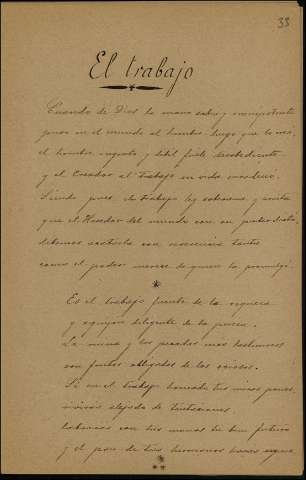 33
El trabajo
Cuando de Dios la mano sabia y omnipotente
puso en el mundo al hombre luego que lo creó,
el hombre ingrato y débil fuele desobediente
y el Creador al trabajo su vida
Siendo pues, el trabajo ley soberana y santa
que el Hacedor del mundo con su poder dictó,
debemos acatarla con reverencia tanta
como el poder merece de quien la promulgó.
Es el trabajo fuente de la riqueza
y aguijón diligente de la pereza.
La ruina y los pecados más
son frutos obligados de los ociosos.
Si en el trabajo honrado tus miras pones,
vivirás alejado de tentaciones.
Labrarás con tus manos tu buen futuro
y el pan de tus hermanos harás seguro